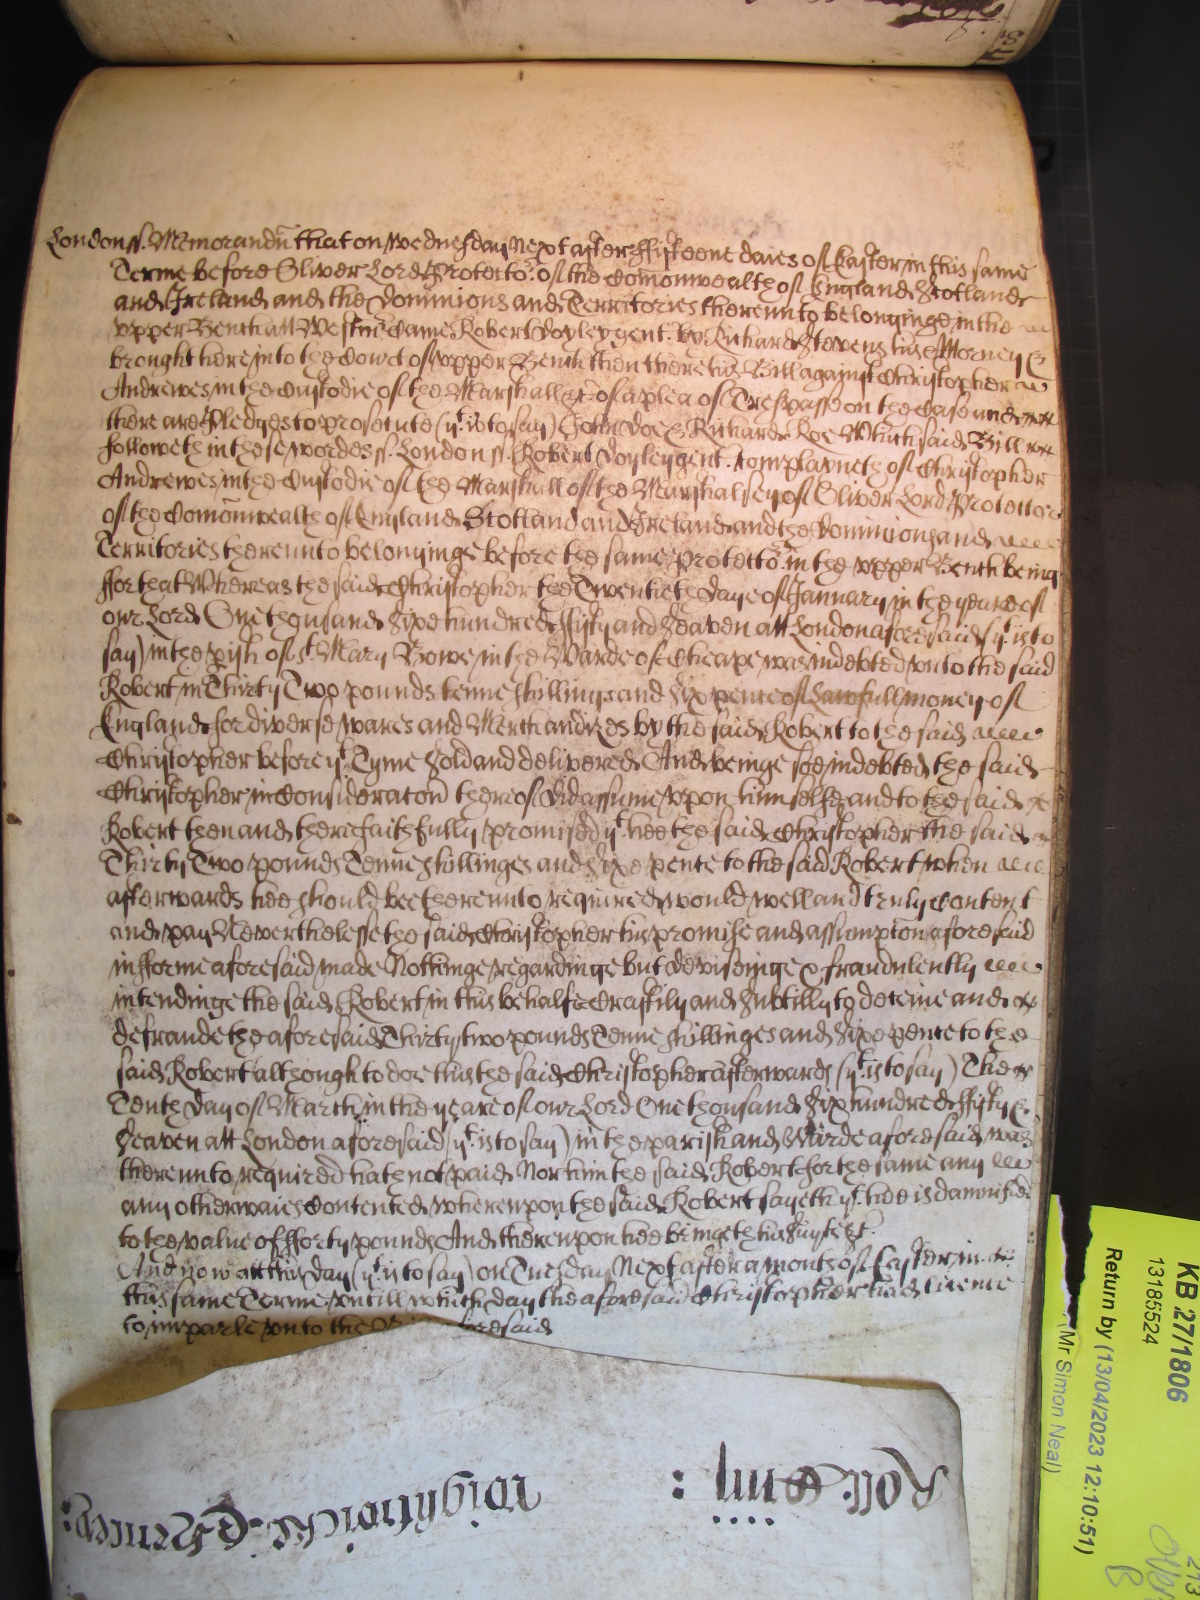 London ss. Memorandu that on Wednesday Next after Fifteene daies of Easter in this same
Terme before Oliver Lord Protector of the Comonwealth of England Scotland
and Ireland and the Dominions and Territories thereunto belonginge in the
upper Bench att Westm Came Robert Doyley gent. by Richard Stevens his Attorney &
brought here into the Court of upper Bench then there his Bill against Christopher
Andrewes in the Custodie of the Marshall &c of a plea of Trespasse on the Case and
there are Pledges to prosecute (yt is to say) John Doe & Richard Roe Which said Bill
followeth in these wordes ss. London ss. Robert Doyley gent. complayneth of Christopher
Andrewes in the Custodie of the Marshall of the Marshalsey of Oliver Lord Protector
of the Comonwealth of England Scotland and Ireland and the Dominions and
Territories thereunto belonginge before the same Protector in the upper Bench being
ffor that Whereas the said Christopher the Twentieth daye of January in the yeare of
our Lord One thousand Sixe hundred Fifty and Seaven att London aforesaid (yt is to
say) in the pish of St. Mary Bowe in the Warde of Cheape was indebted unto the said
Robert in Thirty Two pounds tenne shillings and Sixpence of Lawfull money of
England for diverse wares and Merchandizes by the said Robert to the said
Christopher before yt Tyme Sold and delivered And beinge soe indebted the said
Christopher in Consideracon thereof did assume upon himselfe and to the said
Robert then and there faithfully promised yt hee the said Christopher the said
Thirty Two pounds Tenne shillinges and Sixe pence to the said Robert when
afterwards hee should bee thereunto required would well and truly Content
and pay Neverthelesse the said Christopher his promise and assumpton aforesaid
in fforme aforesaid made Nothinge regardinge but devisinge & fraudulently
intendinge the said Robert in this behalfe Craftily and Subtilly to deceive and
defraude the aforesaid Thirty two pounds Tenne shillinges and Sixe pence to the
said Robert although to doe this the said Christopher afterwards (yt is to say) The
Tenth day of March in the yeare of our Lord One thousand Six hundred Fifty &
Seaven att London aforesaid (yt is to say) in the parish and Warde aforesaid was
thereunto required hath not paid Nor him the said Robert for the same any
any otherwaies Contented whereupon the said Robert sayeth yt hee is damnified
to the value of fforty pounds And thereupon hee bringeth his Suyte &c.
And now att this day (yt is to say) on Tuesday Next after a month of Easter in
this same Terme untill which day the aforesaid Christopher had licence
to imparle unto the aforesaid
Roll:
Wightwicke
KB 27/1806
13185524
Return by (13/04/2023 12:10:51)
(Mr Simon Neal)